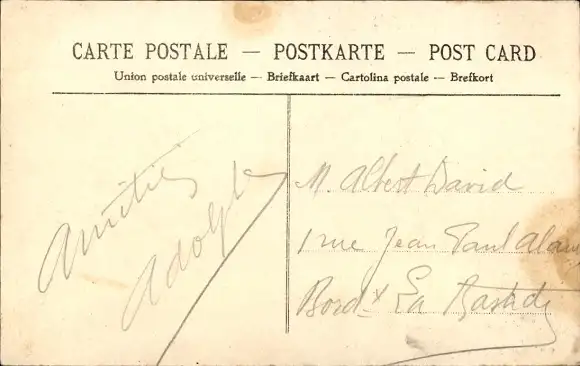 CARTE POSTALE — POSTKARTE — POST CARD
Union postale universelle — Briefkaart — Cartolina postale — Brefkort
Amitiés
Adolphe
M. Albert David
1 rue Jean Paul Alaux
Bordx La Bastide